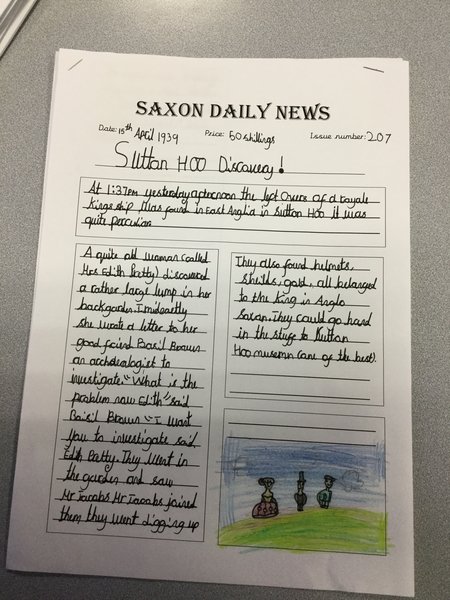 SAXON DAILY NEWS
Date: 15th April 1939 Price: 60 shillings Issue number: 207
Sutton HOO Discovery!
At 1:37pm yesterday afternoon the of a royale
kings ship. Was found in East Anglia in Sutton Hoo it was
quite peculiar
A quite old woman (called
Mrs Edith Patty) discovered
a rather large lump in her
backgarden. Imidently
she wrote a letter to her
good freind Basil Brown
an archealogist to
investigate. "What is the
problem now Edith" said
Baisil Brown "I want
you to investigate said
Edith Patty. They went in
the garden and saw
Mr Jacobs Mr Jacobs joined
them they went digging up
They also found helmets,
sheilds, gold, all belonged
to the king in Anglo
saxan. They could go hand
in the stuff to Sutton
Hoo museum (one of the best).